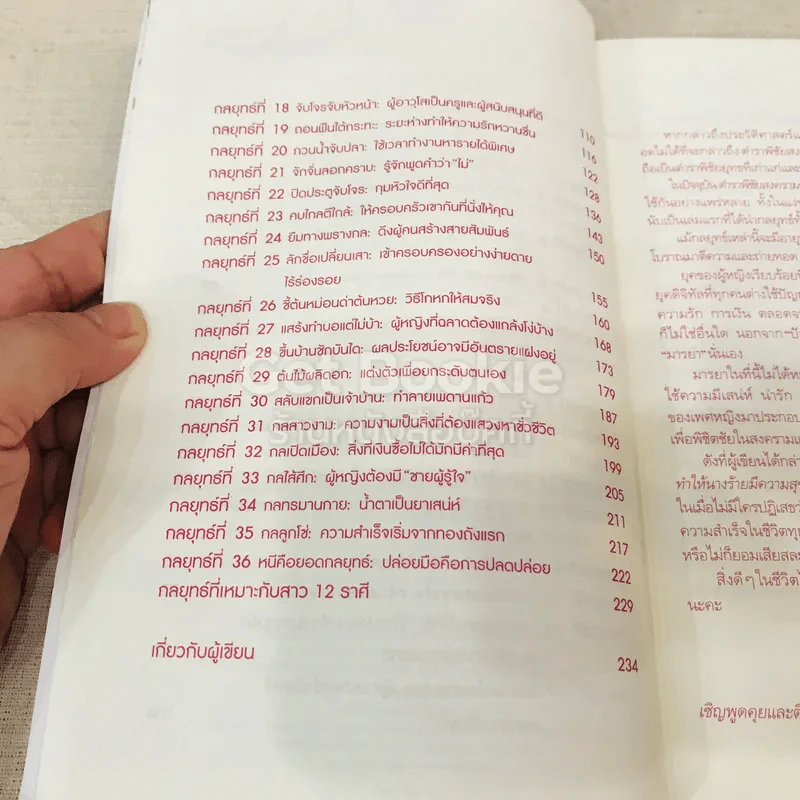 กลยุทธ์ที่ 18 จับโจรจับหัวหน้า: ผู้อาวุโสเป็นครูและผู้สนับสนุนที่ดี
กลยุทธ์ที่ 19 ถอนฟืนใต้กระทะ: ระยะห่างทำให้ความรักหวานชื่น 110
กลยุทธ์ที่ 20 กวนน้ำจับปลา: ใช้เวลาทำงานหารายได้พิเศษ 116
กลยุทธ์ที่ 21 จักจั่นลอกคราบ: รู้จักพูดคำว่า "ไม่" 122
กลยุทธ์ที่ 22 ปิดประตูจับโจร: กุมหัวใจดีที่สุด 128
กลยุทธ์ที่ 23 คบไกลตีใกล้: ให้ครอบครัวเขากันที่นั่งให้คุณ 136
กลยุทธ์ที่ 24 ยืมทางพรางกล: ดึงผู้คนสร้างสายสัมพันธ์ 143
กลยุทธ์ที่ 25 ลักขื่อเปลี่ยนเสา: เข้าครอบครองอย่างง่ายดาย 150
ไร้ร่องรอย
กลยุทธ์ที่ 26 ชี้ต้นหม่อนด่าต้นหวย: วิธีโกหกให้สมจริง 155
กลยุทธ์ที่ 27 แสร้งทำบอแต่ไม่บ้า: ผู้หญิงที่ฉลาดต้องแกล้งโง่บ้าง 160
กลยุทธ์ที่ 28 ขึ้นบ้านชักบันได: ผลประโยชน์อาจมีอันตรายแฝงอยู่ 168
กลยุทธ์ที่ 29 ต้นไม้ผลิดอก: แต่งตัวเพื่อยกระดับตนเอง 173
กลยุทธ์ที่ 30 สลับแขกเป็นเจ้าบ้าน: ทำลายเพดานแก้ว 179
กลยุทธ์ที่ 31 กลสาวงาม: ความงามเป็นสิ่งที่ต้องแสวงหาชั่วชีวิต 187
กลยุทธ์ที่ 32 กลเปิดเมือง: สิ่งที่เงินซื้อไม่ได้มักมีค่าที่สุด 193
กลยุทธ์ที่ 33 กลไส้ศึก: ผู้หญิงต้องมี "ชายผู้รู้ใจ" 199
กลยุทธ์ที่ 34 กลทรมานกาย: น้ำตาเป็นยาเสน่ห์ 205
กลยุทธ์ที่ 35 กลลูกโซ่: ความสำเร็จเริ่มจากทองถังแรก 211
กลยุทธ์ที่ 36 หนีคือยอดกลยุทธ์: ปล่อยมือคือการปลดปล่อย 217
กลยุทธ์ที่เหมาะกับสาว 12 ราศี 222
229
เกี่ยวกับผู้เขียน 234
Get Bookie
ร้านหนังสือบุ๊คกี้
หากกล่าวถึงประวัติศาสตร์
อดไม่ได้ที่จะกล่าวถึง ตำราพิชัยสง
ถือเป็นตำราพิชัยยุทธที่เก่าแก่และ
ในปัจจุบัน ตำราพิชัยสงคราม
ใช้กันอย่างแพร่หลาย ทั้งในแง
นับเป็นเล่มแรกที่ได้นำกลยุทธ์
แม้กลยุทธ์เหล่านี้จะมีอายุ
โบราณมาตีความและถ่ายทอด
ยุคของผู้หญิงเรียบร้อย
ยุคดิจิทัลที่ทุกคนต่างใช้ปัญ
ความรัก การเงิน ตลอดจ
ก็ไม่ใช่อื่นใด นอกจาก
"มารยา" นั่นเอง
มารยาในที่นี้ไม่ได้ห
ใช้ความมีเสน่ห์ น่ารัก
ของเพศหญิงมาประกอบ
เพื่อพิชิตชัยในสงคราม
ดังที่ผู้เขียนได้กล่า
ทำให้นางร้ายมีความสุ
ในเมื่อไม่มีใครปฏิเสธ
ความสำเร็จในชีวิตทุก
หรือไม่ก็ยอมเสียสละ
สิ่งดีๆ ในชีวิต
นะคะ
เชิญพูดคุยและติ